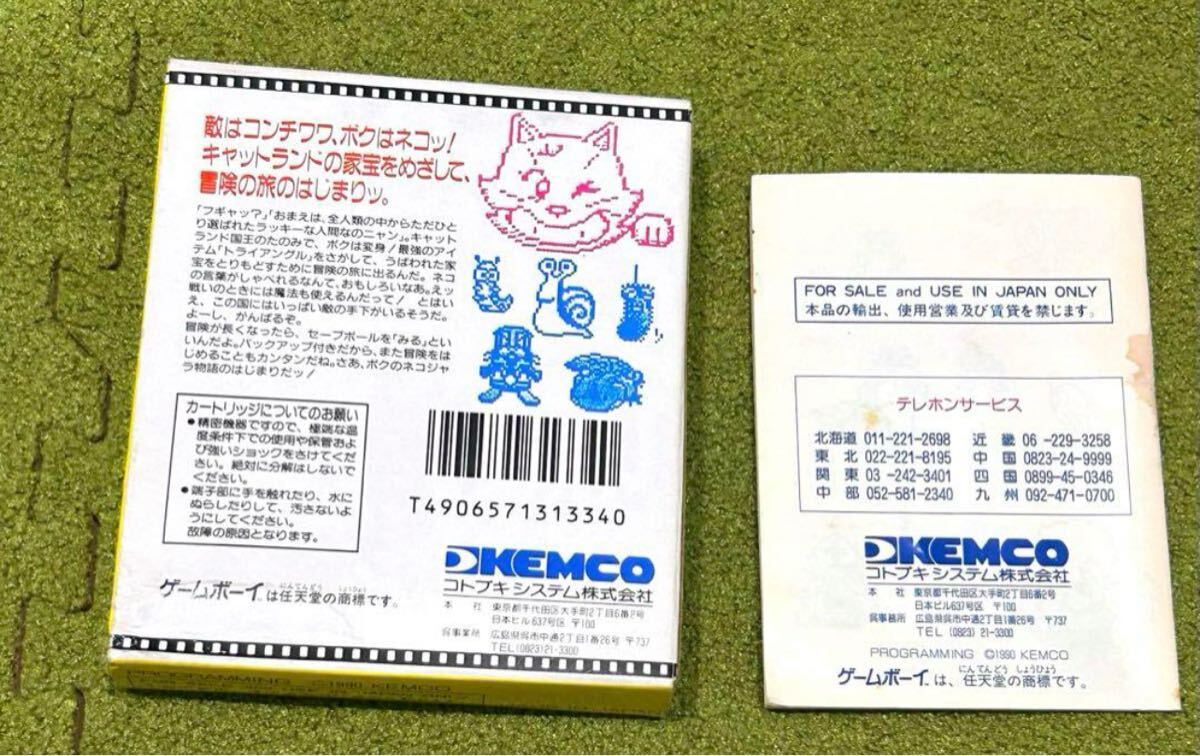 敵はコンチワワ、ボクはネコッ!
キャットランドの家宝をめざして、
冒険の旅のはじまりッ。
「フギャッ?」「おまえは、全人類の中からただひと
り選ばれたラッキーな人間なのニャン」。キャット
ランド国王のたのみで、ボクは変身!最強のアイ
テム「トライアングル」をさがして、うばわれた家
宝をとりもどすために冒険の旅に出るんだ。ネコ
の言葉がしゃべれるなんて、おもしろいなあ。えッ
戦いのときには魔法も使えるんだって! とはい
え、この国にはいっぱい敵の手下がいるそうだ。
よーし、がんばるぞ。
冒険が長くなったら、セーブボールを「みる」とい
いんだよ。バックアップ付きだから、また冒険をは
じめることもカンタンだね。さあ、ボクのネコジャ
ラ物語のはじまりだッ!
カートリッジについてのお願い
●精密機器ですので、極端な温
度条件下での使用や保管およ
び強いショックをさけてくだ
さい。絶対に分解はしないで
ください。
●端子部に手を触れたり、水に
ぬらしたりして、汚さないよ
うにしてください。
故障の原因となります。
T4906571313340
KEMCO
コトブキシステム株式会社
本 社 東京都千代田区大手町2丁目6番2号
日本ビル637号区 〒100
呉事業所 広島県呉市中通2丁目1番26号 〒737
TEL(0823)21-3300
ゲームボーイは任天堂の商標です。
にんてんどう しょうひょう
PROGRAMMING ©1990 KEMCO
FOR SALE and USE IN JAPAN ONLY
本品の輸出、使用営業及び賃貸を禁じます。
テレホンサービス
北海道 011-221-2698 近 畿 06-229-3258
東 北 022-221-8195 中 国 0823-24-9999
関 東 03-242-3401 四 国 0899-45-0346
中 部 052-581-2340 九 州 092-471-0700
KEMCO
コトブキシステム株式会社
本 社 東京都千代田区大手町2丁目6番2号
日本ビル637号区 〒100
呉事務所 広島県呉市中通2丁目1番26号 〒737
TEL (0823) 21-3300
PROGRAMMING ©1990 KEMCO
にんてんどう しょうひょう
ゲームボーイは、任天堂の商標です。